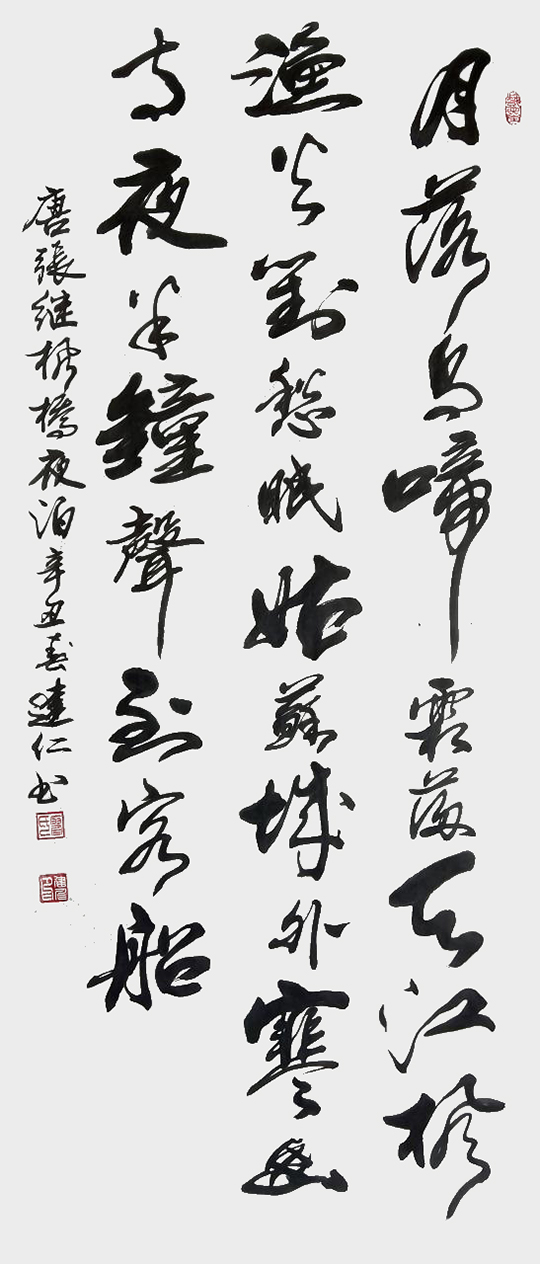 月落烏啼霜滿天江楓
漁火對愁眠姑蘇城外寒山
寺夜半鐘聲到客船
唐張继楓橋夜泊辛丑春達仁书